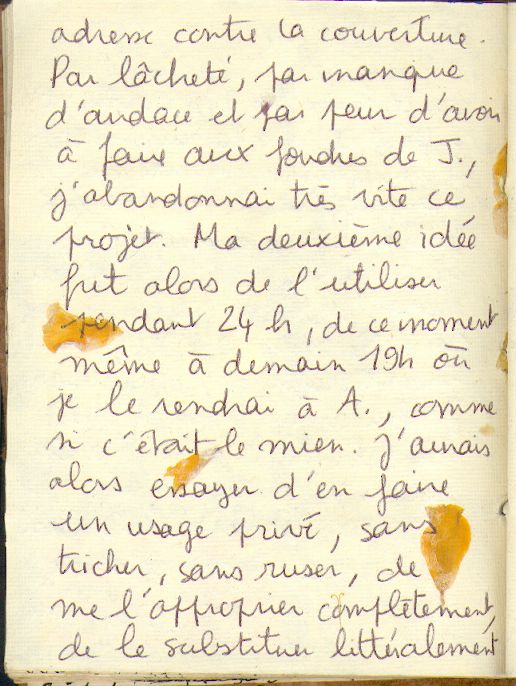 adresse contre la couverture.
Par lâcheté, par manque
d'audace et par peur d'avoir
à faire aux foudres de J.,
j'abandonnai très vite ce
projet. Ma deuxième idée
fut alors de l'utiliser
pendant 24 h, de ce moment
même à demain 19h où
je le rendrai à A., comme
si c'était le mien. J'aurais
alors essayer d'en faire
un usage privé, sans
tricher, sans ruser, de
me l'approprier complètement,
de le substituer littéralement